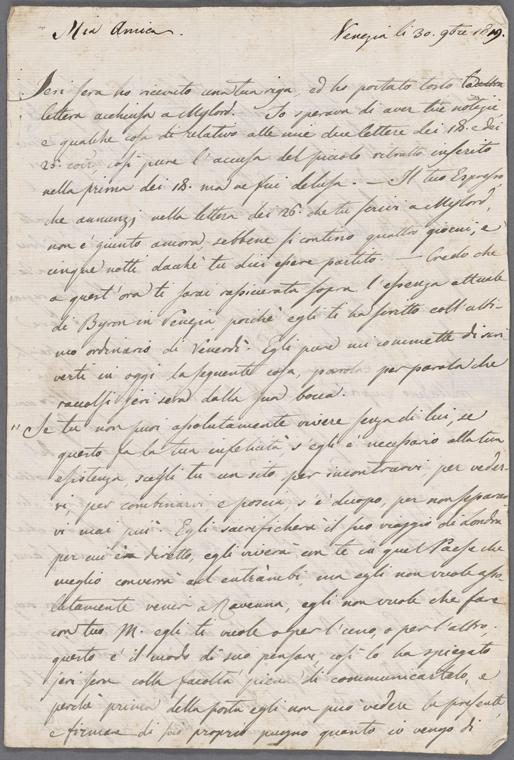 Mia Amica.
Venezia li 30. 9bre 1819.
Jeri sera ho ricevuto una tua riga, ed ho portato tosto la
lettera acchiusa a Mylord. Io sperava di aver tue notizie
e qualche cosa di relativo alle mie due lettere dei 18. e dei
23. così pure l'accusa del piccolo ritratto inserito
nella prima dei 18. ma ne fui delusa. — Il tuo Espresso
che annunzj nella lettera dei 26. che tu scrivi a Mylord,
non è giunto ancora, sebbene si contino quattro giorni, e
cinque notti dacchè tu dici essere partito. — Credo che
a quest'ora ti sarai rassicurata sopra l'essenza attuale
di Byron in Venezia poichè egli ti ha scritto coll'ulti-
mo ordinario di Venerdì. Egli pure mi commette di scri-
verti in oggi la seguente cosa, parola per parola che
raccolsi jeri sera dalla sua bocca.
"Se tu non puoi assolutamente vivere senza di lui, se
questo fa la tua infelicità s'egli è necessario alla tua
esistenza scegli tu un sito per incontrarvi per veder-
vi, per combinarvi e poscia, s'è d'uopo, per non separar-
vi mai più. Egli sacrificherà il suo viaggio di Londra
per cui è diretto, egli viverà con te in quel Paese che
meglio converrà ad entrambi, ma egli non vuole asso-
lutamente venir a Ravenna, egli non vuole che fare
con tuo M. egli ti vuole o per l'uno, o per l'altro;
questo è il modo di suo pensare, così lo ha spiegato
jeri sera colla facoltà piena di communicartelo, e
perchè prima della posta egli non può vedere la presente,
e firmare di suo proprio pugno quanto io vengo di